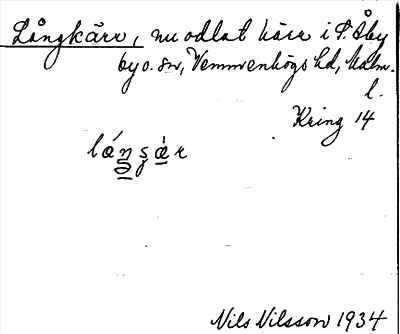 Långkärr, nu odlat kärr i S. Åby
by o. sn, Vemmenhögs hd, Malm.
l.
Kring 14
Nils Nilsson 1934